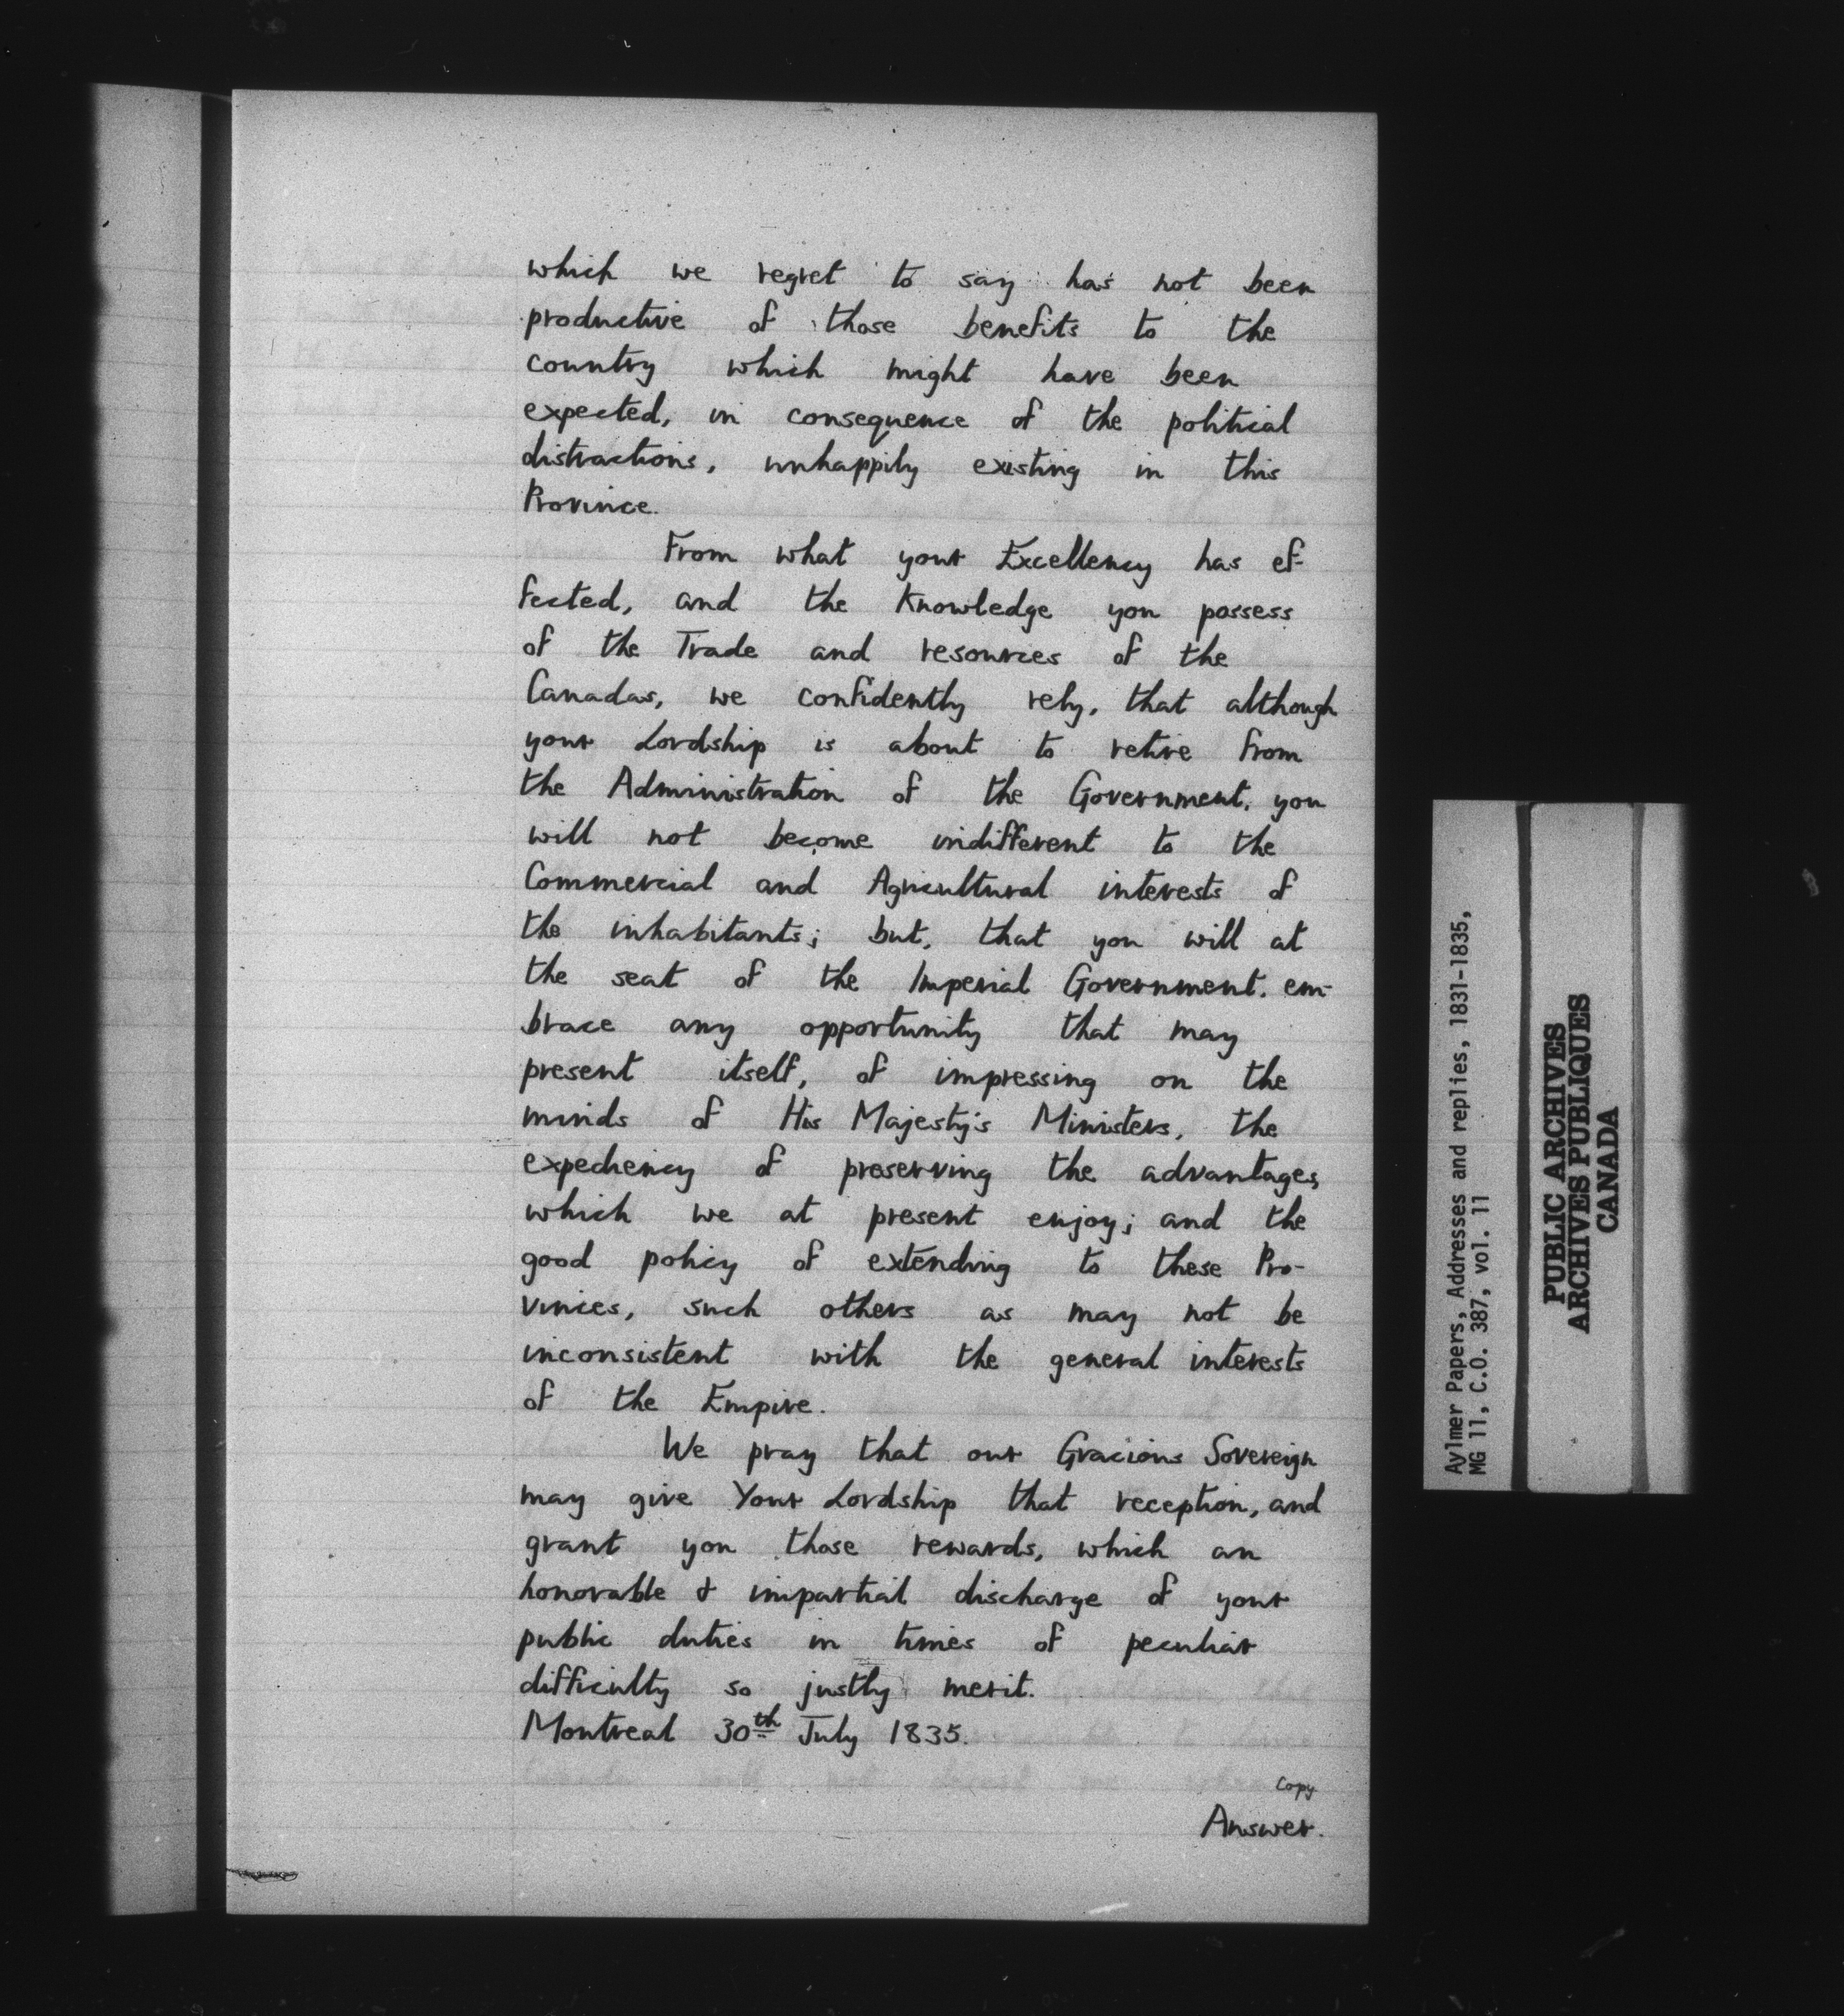 which we regret to say has not been
productive of those benefits to the
country which might have been
expected, in consequence of the political
distractions, unhappily existing in this
Province.
From what your Excellency has ef-
fected, and the Knowledge you possess
of the Trade and resources of the
Canadas, we confidently rely, that although
your Lordship is about to retire from
the Administration of the Government, you
will not become indifferent to the
Commercial and Agricultural interests of
the inhabitants; but, that you will at
the seat of the Imperial Government, em-
brace any opportunity that may
present itself, of impressing on the
minds of His Majesty's Ministers, the
expediency of preserving the advantages,
which we at present enjoy; and the
good policy of extending to these Pro-
vinces, such others as may not be
inconsistent with the general interests
of the Empire.
We pray that our Gracious Sovereign
may give Your Lordship that reception, and
grant you those rewards, which an
honorable & impartial discharge of your
public duties in times of peculiar
difficulty so justly merit.
Montreal 30th July 1835.
Copy
Answer.
Aylmer Papers, Addresses and replies, 1831-1835,
MG 11, C.O. 387, vol. 11
PUBLIC ARCHIVES
ARCHIVES PUBLIQUES
CANADA